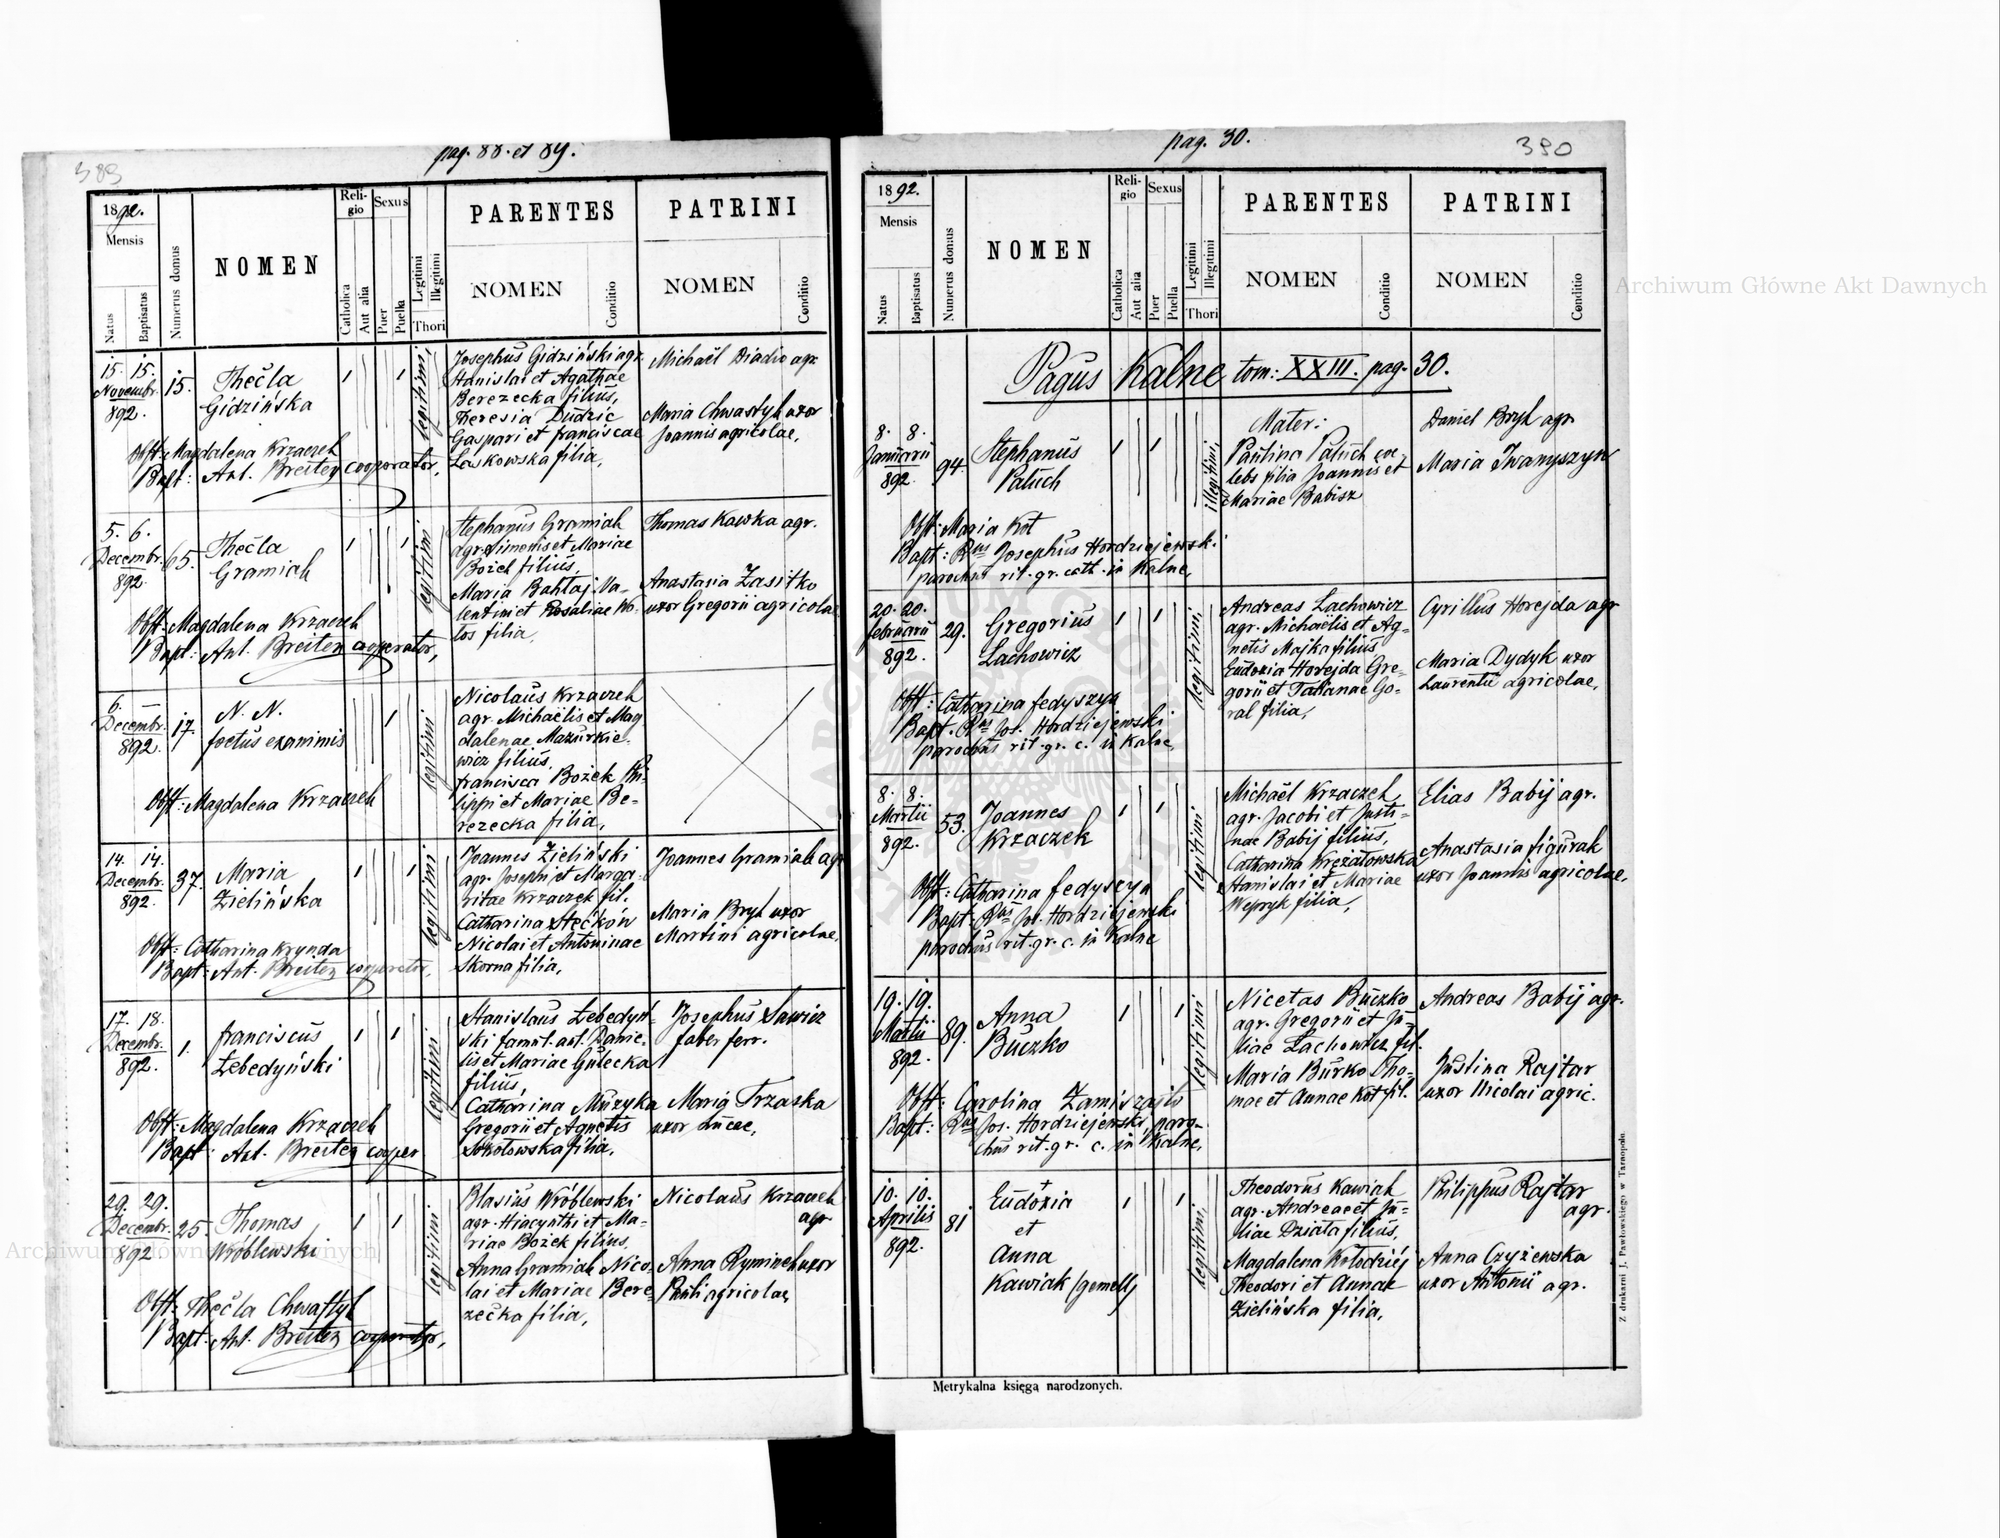 pag. 88. et 89.
389
1892.
Mensis
Natus
Baptisatus
Numerus domus
NOMEN
Religio
Catholica
Aut alia
Sexus
Puer
Puella
Legitimi
Illegitimi
Thori
PARENTES
NOMEN
Conditio
PATRINI
NOMEN
Conditio
15. 15.
Novembr.
892.
15.
Thecla
Gidzińska
legitimi
Josephus Gidziński agr.
Stanislai et Agathae
Berezecka filius,
Theresia Dudzic
Gaspari et Franciscae
Laskowska filia,
Michaël Diadio agr.
Maria Chwastyk uxor
Joannis agricolae,
Obst: Magdalena Krzaczek
Bapt: Ant. Breiter cooperator,
5. 6.
Decembr.
892.
65.
Thecla
Gramiak
legitimi
Stephanus Gramiak
agr. Simonis et Mariae
Bożek filius,
Maria Bahtaj Va-
lentini et Rosaliae Ko-
tos filia,
Thomas Kawka agr.
Anastasia Zasitko
uxor Gregorii agricolae
Obst: Magdalena Krzaczek
Bapt: Ant. Breiter cooperator,
6. —
Decembr.
892.
17.
N. N.
foetus exanimis
legitimi
Nicolaus Krzaczek
agr. Michaëlis et Mag
dalenae Mazurkie-
wicz filius,
Francisca Bożek Phi-
lippi et Mariae Be-
rezecka filia,
Obst: Magdalena Krzaczek
14. 14.
Decembr.
892.
37.
Maria
Zielińska
legitimi
Joannes Zieliński
agr. Josephi et Marga-
ritae Krzaczek fil.
Catharina Stečków
Nicolai et Antoninae
Skorna filia,
Joannes Gramiak agr
Maria Bryk uxor
Martini agricolae,
Obst: Catharina Krynda
Bapt: Ant. Breiter cooperator,
17. 18.
Decembr.
892.
1.
Franciscus
Łebedyński
legitimi
Stanislaus Łebedyń-
ski famul. aul. Danie-
lis et Mariae Gułecka
filius,
Catharina Muzyka
Gregorii et Agnetis
Sokołowska filia,
Josephus Sawicz
faber ferr.
Maria Trzaska
uxor Lucae,
Obst: Magdalena Krzaczek
Bapt: Ant. Breiter cooper
29. 29.
Decembr.
892.
25.
Thomas
Wróblewski
legitimi
Blasius Wróblewski
agr. Hiacynthi et Ma-
riae Bożek filius,
Anna Gramiak Nico-
lai et Mariae Bere-
zecka filia,
Nicolaus Krzaczek
agr.
Anna Ryminek uxor
Pauli agricolae,
Obst: Thecla Chwastyk
Bapt: Ant. Breiter cooperator,
pag. 30.
390
1892.
Mensis
Natus
Baptisatus
Numerus domus
NOMEN
Religio
Catholica
Aut alia
Sexus
Puer
Puella
Legitimi
Illegitimi
Thori
PARENTES
NOMEN
Conditio
PATRINI
NOMEN
Conditio
Pagus Kalne tom: XXIII. pag. 30.
8. 8.
Januarii
892.
94.
Stephanus
Paluch
illegitimi
Mater:
Paulina Paluch coe-
lebs filia Joannis et
Mariae Babisz
Daniel Bryk agr
Maria Iwanyszyn
Obst: Maria Kot
Bapt: Rus Josephus Hordziejewski
parochus rit. gr. cath. in Kalne,
20. 20.
Februarii
892.
29.
Gregorius
Lachowicz
legitimi
Andreas Lachowicz
agr. Michaëlis et Ag-
netis Majka filius,
Eudoxia Horejda Gre-
gorii et Tatianae Go-
ral filia,
Cyrillus Horejda agr
Maria Dydyk uxor
Laurentii agricolae,
Obst: Catharina Fedyszyn
Bapt. Rus Jos. Hordziejewski
parochus rit. gr. c. in Kalne,
8. 8.
Martii
892.
53.
Joannes
Krzaczek
legitimi
Michaël Krzaczek
agr. Jacobi et Justi-
nae Babij filius,
Catharina Krezałowska
Stanislai et Mariae
Wepryk filia,
Elias Babij agr.
Anastasia Figurak
uxor Joannis agricolae,
Obst: Catharina Fedyszyn
Bapt. Rus Jos. Hordziejewski
parochus rit. gr. c. in Kalne
19. 19.
Martii
892.
89.
Anna
Buczko
legitimi
Nicetas Buczko
agr. Gregorii et Ju-
liae Lachowicz fil.
Maria Burko Tho-
mae et Annae Kot fil.
Andreas Babij agr.
Justina Rajtar
uxor Nicolai agric.
Obst: Carolina
Bapt: Rus Jos. Hordziejewski, paro-
chus rit. gr. c. in Kalne,
10. 10.
Aprilis
892.
81
Eudoxia
et
Anna
Kawiak (gemelli)
legitimi
Theodorus Kawiak
agr. Andreae et Ju-
liae Działa filius,
Magdalena Kołodziej
Theodori et Annae
Zielińska filia,
Philippus Rajtar
agr.
Anna Czyżewska
uxor Antonii agr.
Metrykalna księga narodzonych.
Z drukarni J. Pawłowskiego w Tarnopolu.
Archiwum Główne Akt Dawnych
Archiwum Główne Akt Dawnych